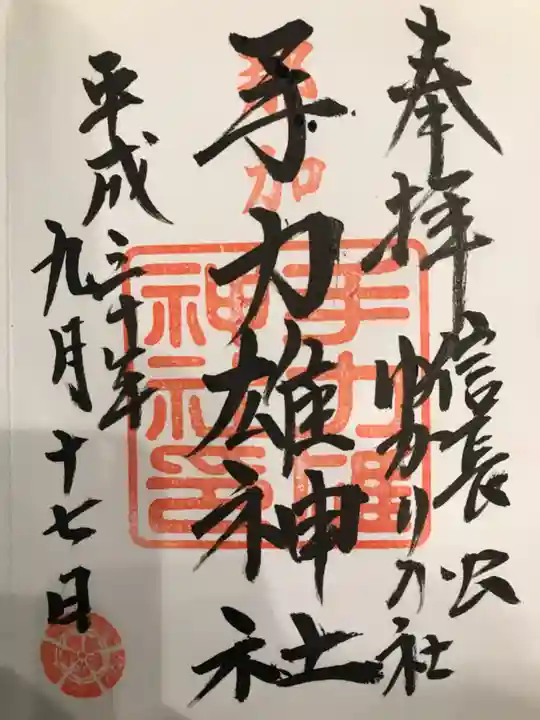 奉拝
信長公
ゆかりの社
手力雄神社
平成三十年
九月十七日
加
手力雄
神社印